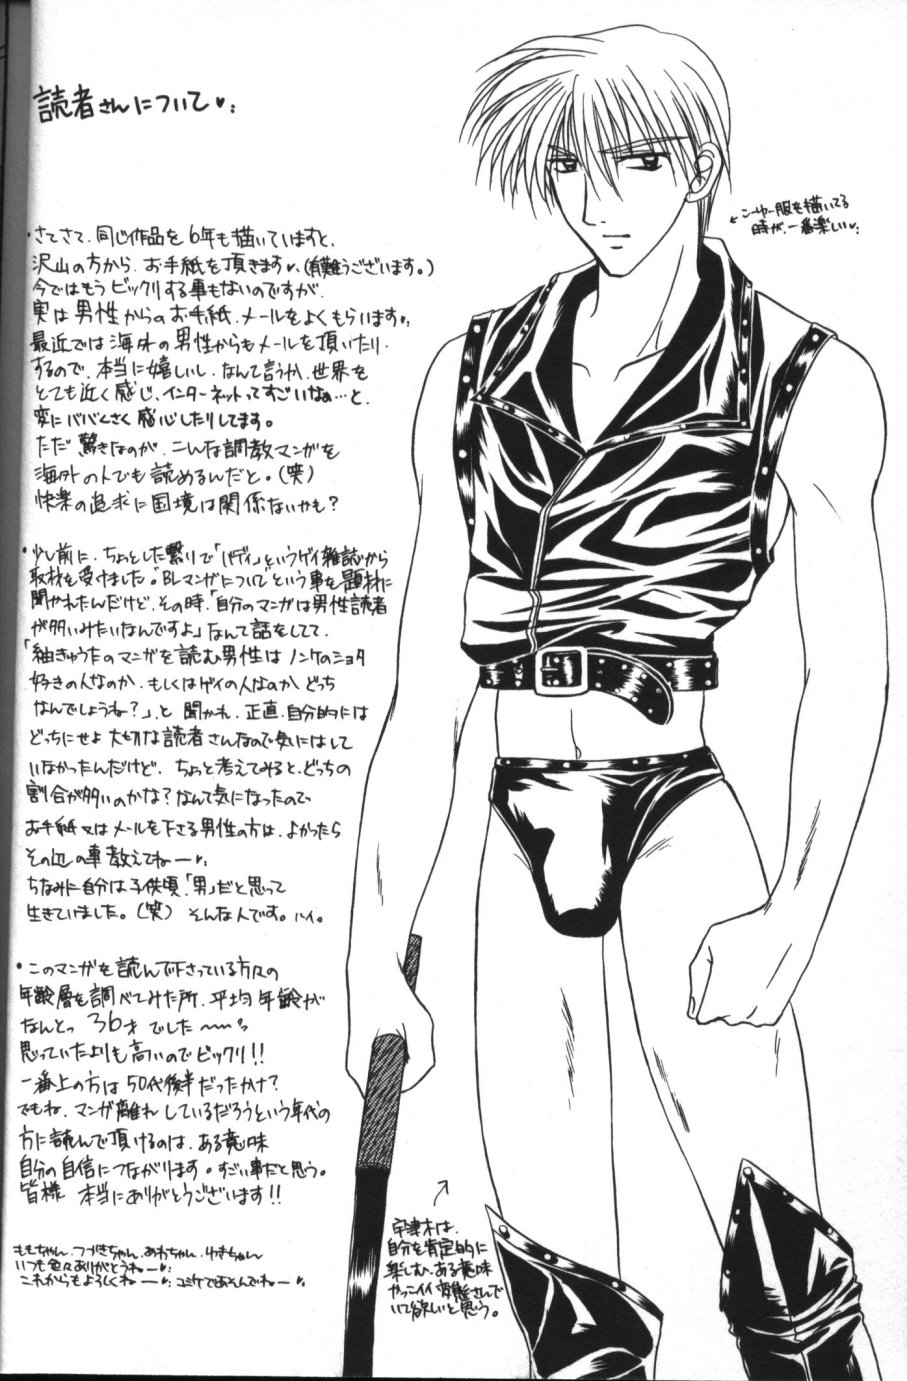 読者さんについて♥:
・さてさて、同じ作品を6年も描いていますと、
沢山の方から、お手紙を頂きます♥、(有難うございます。)
今ではもうビックリする事もないのですが、
実は男性からのお手紙、メールをよくもらいます♥:
最近では海外の男性からもメールを頂いたり
するので、本当に嬉しいし、なんて言うか、世界を
とても近く感じ、インターネットってすごいなぁ…と、
変にババくさく感心したりしてます。
ただ驚きなのが、こんな調教マンガを
海外の人でも読めるんだと。(笑)
快楽の追求に国境は関係ないかも?
・少し前に、ちょっとした繋りで「バディ」というゲイ雑誌から
取材を受けました。"BLマンガについて"という事を題材に
聞かれたんだけど、その時、「自分のマンガは男性読者
が多いみたいなんですよ」なんて話をしてて、
「紬きゅうたのマンガを読む男性はノンケのショタ
好きの人なのか、もしくはゲイの人なのか、どっち
なんでしょうね?」、と聞かれ、正直、自分的には
どっちにせよ大切な読者さんなので気にはして
いなかったんだけど、ちょっと考えてみると、どっちの
割合が多いのかな?なんて気になったので
お手紙又はメールを下さる男性の方は、よかったら
その辺の事教えてねー♥:
ちなみに自分は子供頃、「男」だと思って
生きていました。(笑) そんな人です。ハイ。
・このマンガを読んで下さっている方々の
年齢層を調べてみた所、平均年齢が
なんとっ 36才でした〜〜っ
思っていたよりも高いのでビックリ!!
一番上の方は50代後半だったかな?
でもね、マンガ離れしているだろうという年代の
方に読んで頂けるのは、ある意味
自分の自信につながります。すごい事だと思う。
皆様 本当にありがとうございます!!
ももちゃん、つづきちゃん、あわちゃん、ゆきちゃん
いつも色々ありがとうねー♥:
これからもよろしくねー♥: コミケであそんでねー♥:
←シーヤー服を描いてる
時が、一番楽しい♥:
宇津木は、
自分を肯定的に
楽しむ、ある意味
やっこイイ変態さんで
いて欲しいと思う。